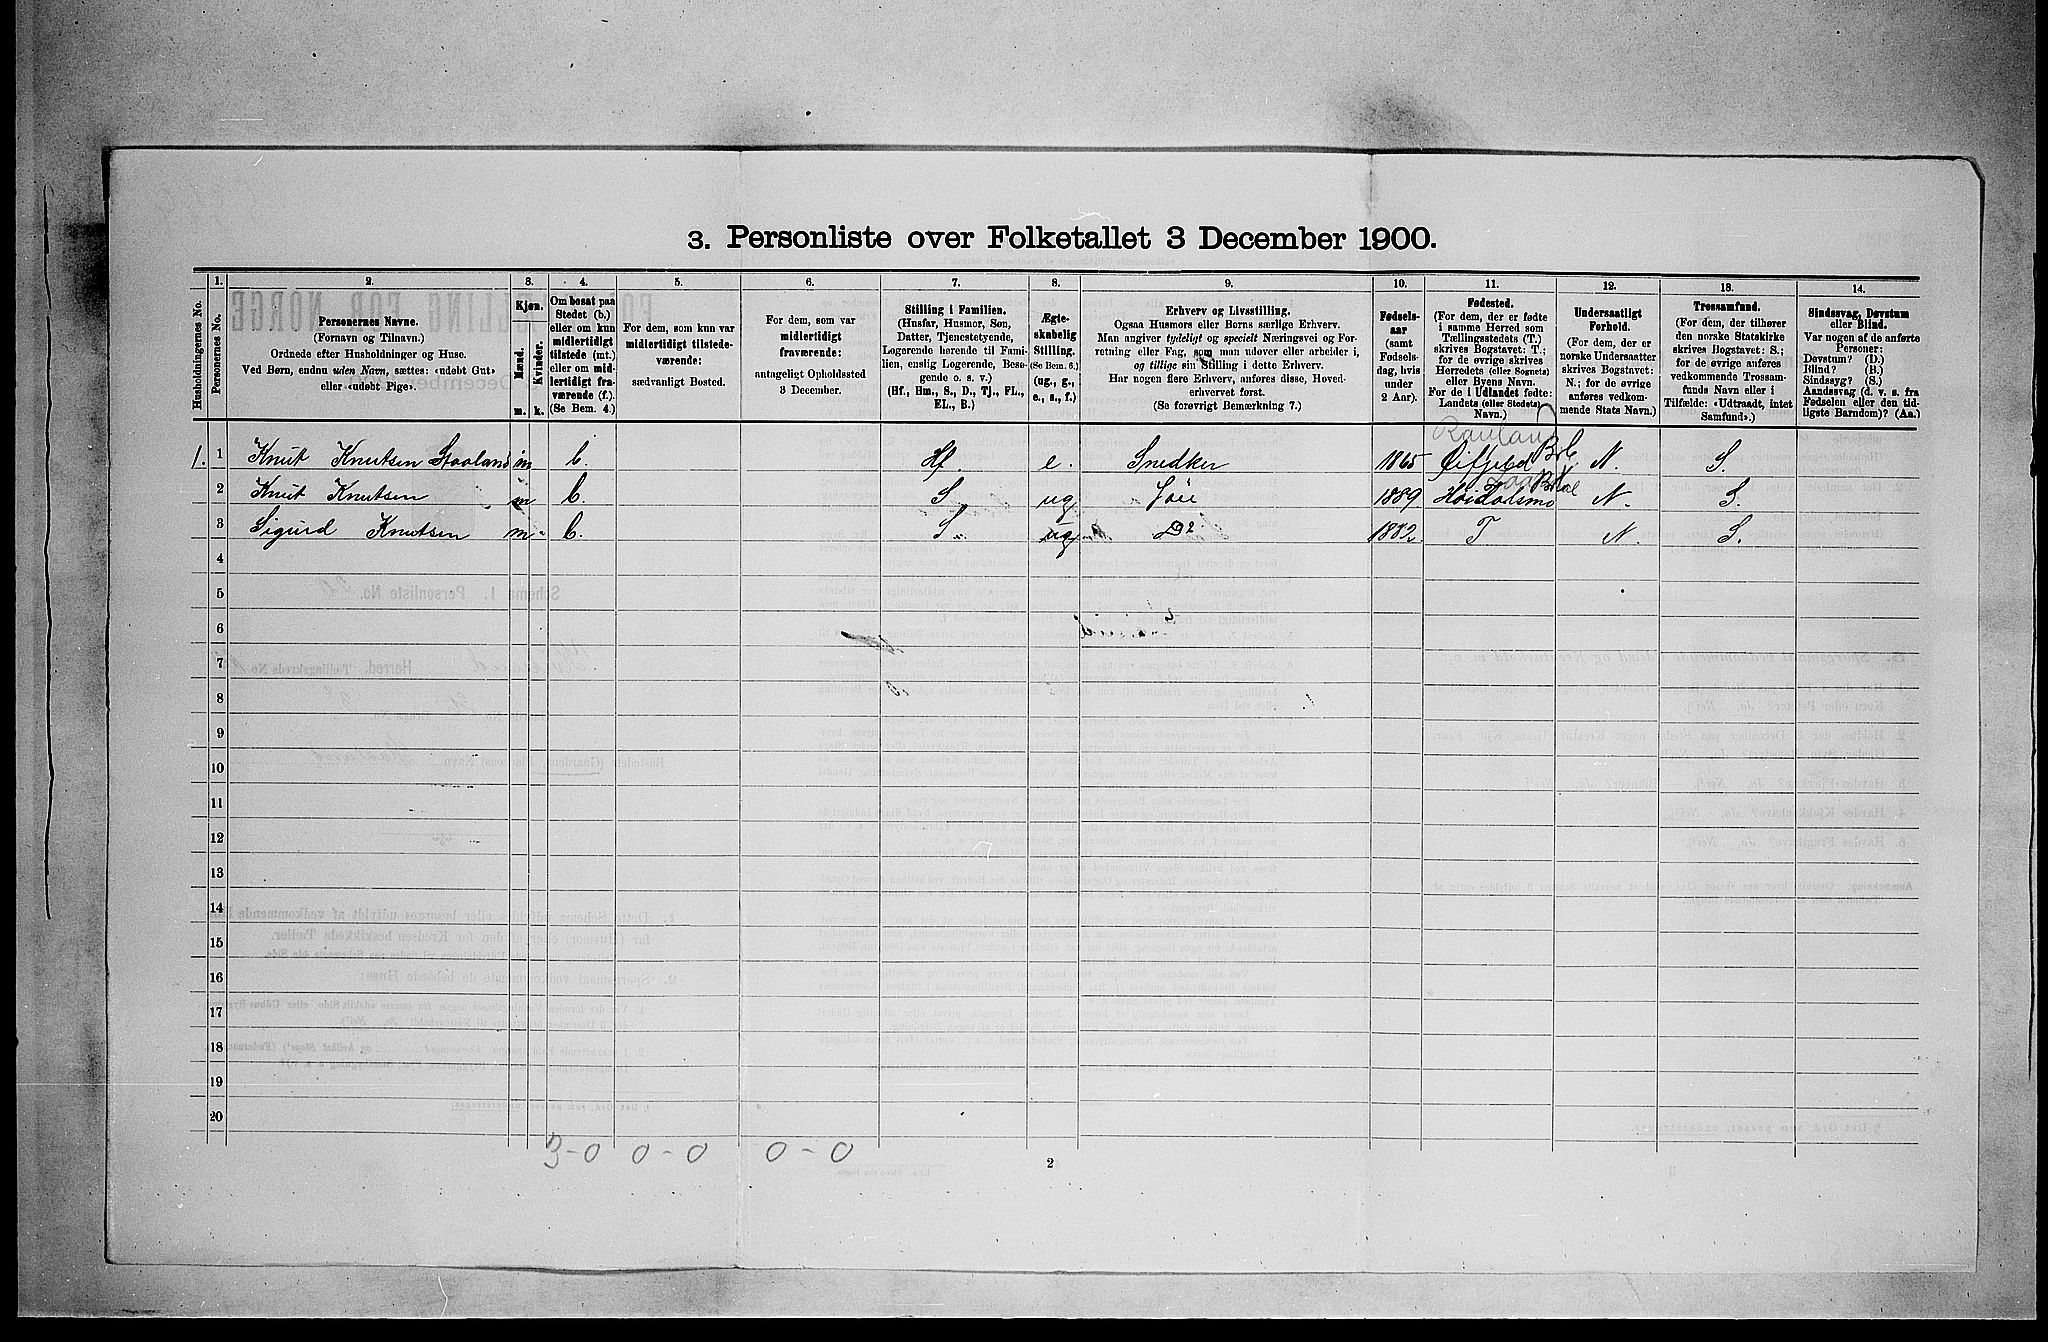 3. Personliste over Folketallet 3 December 1900.
Husholdningernes No.
1.
Personernes No.
2.
Personernes Navne.
(Fornavn og Tilnavn.)
Ordnede efter Husholdninger og Huse.
Ved Børn, endnu uden Navn, sættes: «udøbt Gut»
eller «udøbt Pige».
3.
Kjøn.
Mænd.
Kvinder.
m.
k.
4.
Om bosat paa
Stedet (b.)
eller om kun
midlertidigt
tilstede (mt.)
eller om mid-
lertidigt fra-
værende (f.).
(Se Bem. 4.)
5.
For dem, som kun var
midlertidigt tilstede-
værende:
sædvanligt Bosted.
6.
For dem, som var
midlertidigt
fraværende:
antageligt Opholdssted
3 December.
7.
Stilling i Familien.
(Husfar, Husmor, Søn,
Datter, Tjenestetyende,
Logerende hørende til Fami-
lien, enslig Logerende, Besø-
gende o. s. v.)
(Hf., Hm., S., D., Tj., FL.,
EL., B.)
8.
Ægte-
skabelig
Stilling.
(Se Bem. 6.)
(ug., g.,
e., s., f.)
9.
Erhverv og Livsstilling.
Ogsaa Husmors eller Børns særlige Erhverv.
Man angiver tydeligt og specielt Næringsvei og For-
retning eller Fag, som man udover eller arbeider i,
og tillige sin Stilling i dette Erhverv.
Har nogen flere Erhverv, anføres disse, Hoved-
erhvervet først.
(Se forøvrigt Bemærkning 7.)
10.
Fødsels-
aar
(samt
Fødsels-
dag, hvis
under
2 Aar).
11.
Fødested.
(For dem, der er fødte
i samme Herred som
Tællingsstedets (T.)
skrives Bogstavet: T.;
for de øvrige skrives
Herredets (eller Sognets)
eller Byens Navn.
For de i Udlandet fødte:
Landets (eller Stedets)
Navn.)
12.
Undersaatligt
Forhold.
(For dem, der er
norske Undersaatter
skrives Bogstavet:
N.; for de øvrige
anføres vedkom-
mende Stats Navn.)
13.
Trossamfund.
(For dem, der tilhører
den norske Statskirke
skrives Bogstavet: S.;
for de øvrige anføres
vedkommende Trossam-
funds Navn eller i
Tilfælde: «Udtraadt, intet
Samfund».)
14.
Sindssvag, Døvstum
eller Blind.
Var nogen af de anførte
Personer:
Døvstum? (D.)
Blind? (B.)
Sindssyg? (S.)
Aandssvag (d. v. s. fra
Fødselen eller den tid-
ligste Barndom)? (Aa.)
Rauland
1. 1 Knut Knutsen Staaland m b. Hf. e. Snedker 1865 Øifjeld N. S.
2 Knut Knutsen m b. S ug 1889 Høidalsmo N. S.
3 Sigurd Knutsen m b. S ug Do 1882 T N. S.
4
5
6
7
8
9
10
11
12
13
14
15
16
17
18
19
20
3-0 0-0 0-0
2